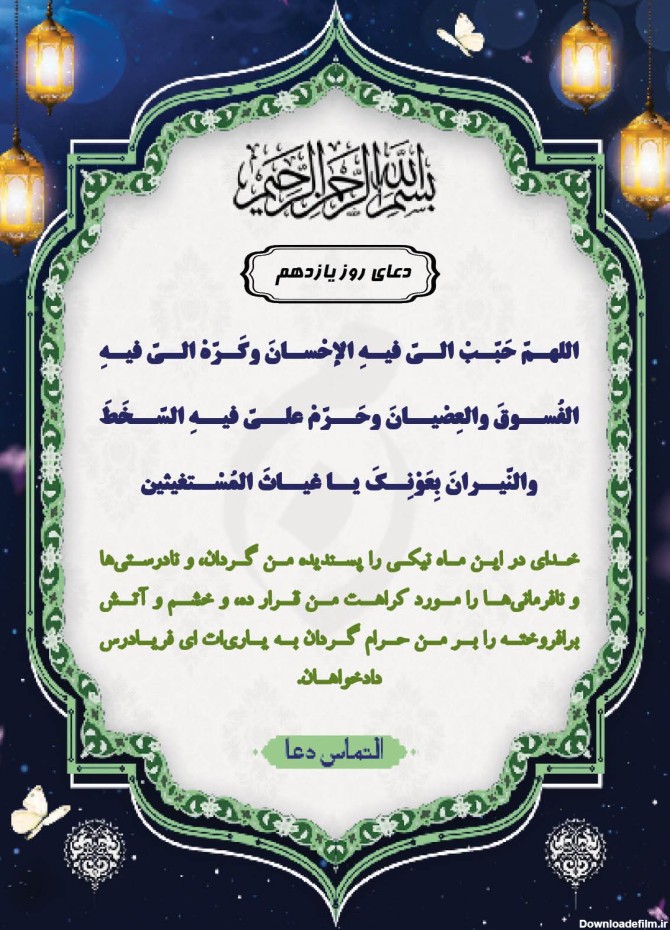 بسم الله الرحمن الرحیم
دعای روز یازدهم
اللهمّ حَبّبْ الیّ فیهِ الإحْسانَ وکَرّهْ الیّ فیهِ
الفُسوقَ والعِصْیانَ وحَرّمْ علیّ فیهِ السّخَطَ
والنّیرانَ بِعَوْنِکَ یا غیاثَ المُسْتغیثین
خدای در این ماه نیکی را پسندیده من گردان، و نادرستی‌ها
و نافرمانی‌ها را مورد کراهت من قرار ده، و خشم و آتش
برافروخته را بر من حرام گردان به یاری‌ات ای فریادرس
دادخواهان.
التماس دعا
Downloadefilm.ir